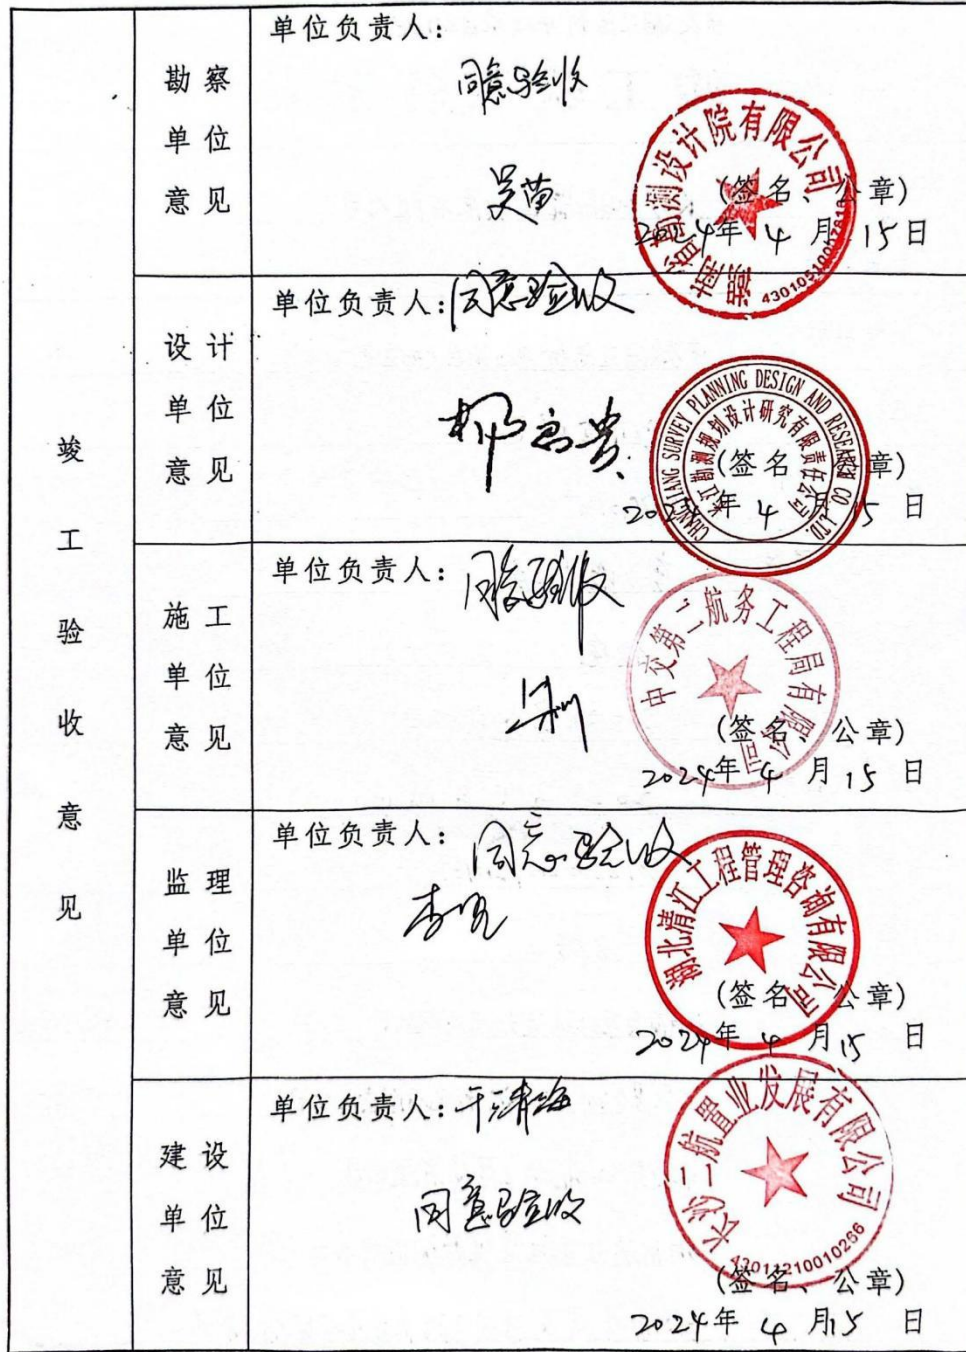 竣工验收意见
勘察单位意见
单位负责人:
同意验收
吴苗
湖南省勘测设计院有限公司
(签名、公章)
2024年 4 月 15日
设计单位意见
单位负责人:同意验收
CHANGJIANG SURVEY PLANNING DESIGN AND RESEARCH CO., LTD.
长江勘测规划设计研究有限责任公司
(签名、公章)
2024年 4 月 15 日
施工单位意见
单位负责人:
同意验收
中交第二航务工程局有限公司
(签名、公章)
2024年 4 月 15 日
监理单位意见
单位负责人:
同意验收
湖北清江工程管理咨询有限公司
(签名、公章)
2024年 4 月 15 日
建设单位意见
单位负责人:
同意验收
长沙二航置业发展有限公司
43011210010266
(签名、公章)
2024年 4 月 15 日